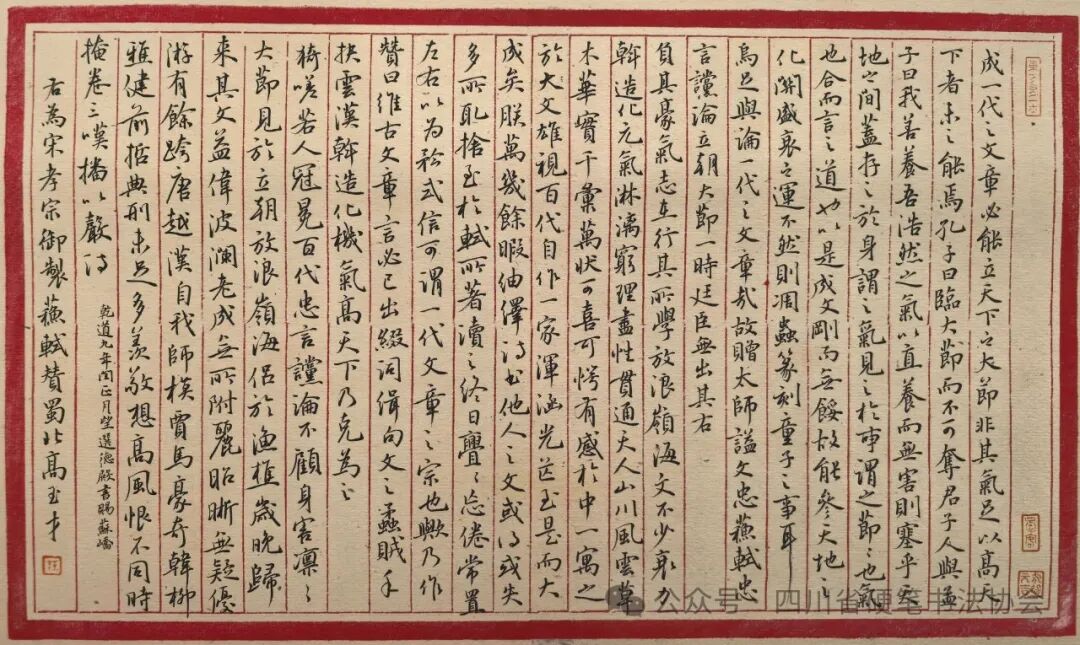 成一代之文章必能立天下之大节非其氣足以高天
下者未之能焉孔子曰臨大節而不可奪君子人與孟
子曰我善養吾浩然之氣以直養而無害則塞乎天
地之間蓋存之於身謂之氣見之於事謂之節節也氣
也合而言之道也以是成文剛而無餒故能參天地之
化關盛衰之運不然則凋蟲篆刻童子之事耳
烏足與論一代之文章哉故贈太師謚文忠蘇軾忠
言讜論立朝大節一時廷臣無出其右
負其豪氣志在行其所學放浪嶺海文不少衰力
斡造化元氣淋漓窮理盡性貫通天人山川風雲草
木華實千彙萬狀可喜可愕有感於中一寓之
於大文雄視百代自作一家渾涵光芒至是而大
成矣朕萬幾餘暇紬繹詩書他人之文或得或失
多所取捨至於軾所著讀之終日亹亹忘倦常置
左右以為矜式信可謂一代文章之宗也歟乃作
贊曰維古文章言必己出綴詞緝句文之蟊賊手
抉雲漢斡造化機氣高天下乃克為之
猗嗟若人冠冕百代忠言讜論不顧身害凛凛
大節見於立朝放浪嶺海侣於漁樵歲晚歸
来其文益偉波瀾老成無所附麗昭晰無疑優
游有餘跨唐越漢自我師模賈馬豪奇韓柳
雅健前哲典刑未足多羨敬想高風恨不同時
掩卷三嘆播以聲詩
乾道九年閏正月望選德殿書賜蘇嶠
右為宋孝宗御製蘇軾贊蜀北高玉才
公众号 四川省硬笔书法协会